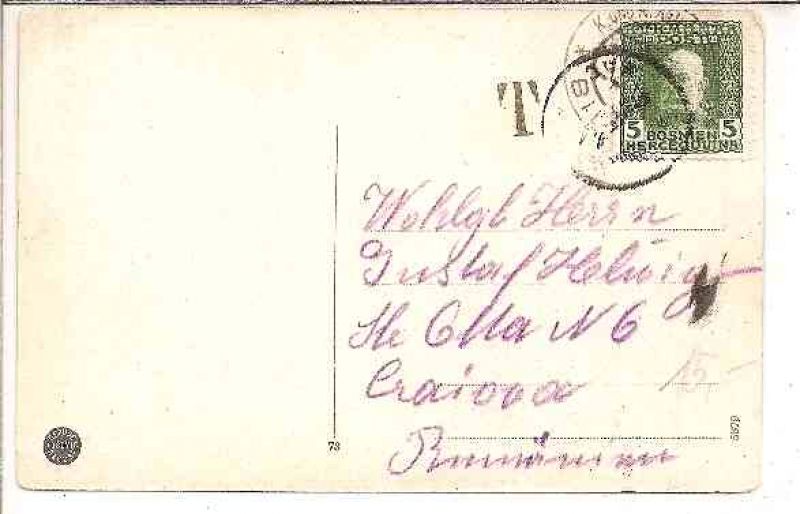 T
5 BOSNIEN 5
HERCEGOVINA
Wohlgb Herrn
Gustaf Helwig
Str Otta N 6
Craiova
15-
Rumänien
73